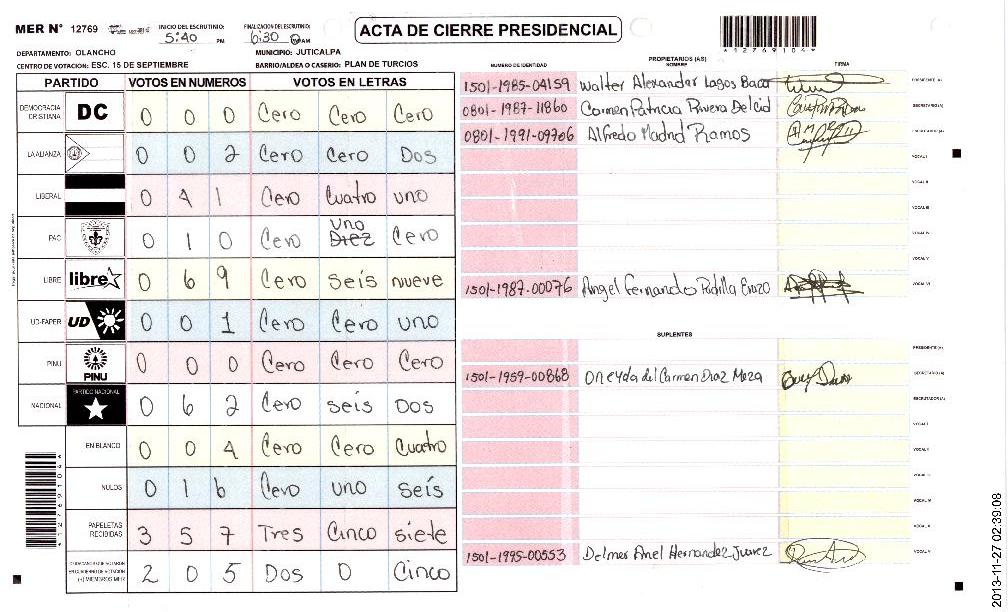 MER N° 12769
INICIO DEL ESCRUTINIO:
5:40 PM
FINALIZACION DEL ESCRUTINIO:
6:30 PM AM
ACTA DE CIERRE PRESIDENCIAL
*12769104*
DEPARTAMENTO: OLANCHO
MUNICIPIO: JUTICALPA
CENTRO DE VOTACION: ESC. 15 DE SEPTIEMBRE
BARRIO/ALDEA O CASERIO: PLAN DE TURCIOS
PARTIDO VOTOS EN NUMEROS VOTOS EN LETRAS
DEMOCRACIA CRISTIANA DC 0 0 0 Cero Cero Cero
LA ALIANZA 0 0 2 Cero Cero Dos
LIBERAL 0 4 1 Cero Cuatro uno
PAC 0 1 0 Cero Diez uno Cero
LIBRE libre 0 6 9 Cero seis nueve
UD-FAPER UD 0 0 1 Cero Cero uno
PINU PINU 0 0 0 Cero Cero Cero
NACIONAL PARTIDO NACIONAL 0 6 2 Cero seis Dos
EN BLANCO 0 0 4 Cero Cero Cuatro
NULOS 0 1 6 Cero uno seis
PAPELETAS RECIBIDAS 3 5 7 Tres Cinco siete
CIUDADANOS QUE VOTARON EN CUADERNO DE VOTACION (+) MIEMBROS MER 2 0 5 Dos 0 Cinco
*12769104*
PROPIETARIOS (AS)
NUMERO DE IDENTIDAD NOMBRE FIRMA
1501-1985-04159 Walter Alexander Lagos Baca PRESIDENTE (A)
0801-1987-11860 Carmen Patricia Rivera Del Cid SECRETARIO (A)
0801-1991-09706 Alfredo Madrid Ramos ESCRUTADOR (A)
VOCAL I
VOCAL II
VOCAL III
VOCAL IV
VOCAL V
1501-1987-00076 Angel Fernando Padilla Erazo VOCAL VI
SUPLENTES
PRESIDENTE (A)
1501-1959-00868 Oneyda del Carmen Diaz Meza SECRETARIO (A)
ESCRUTADOR (A)
VOCAL I
VOCAL II
VOCAL III
VOCAL IV
1501-1995-00553 Delmer Ariel Hernandez Juarez
2013-11-27 02:39:08